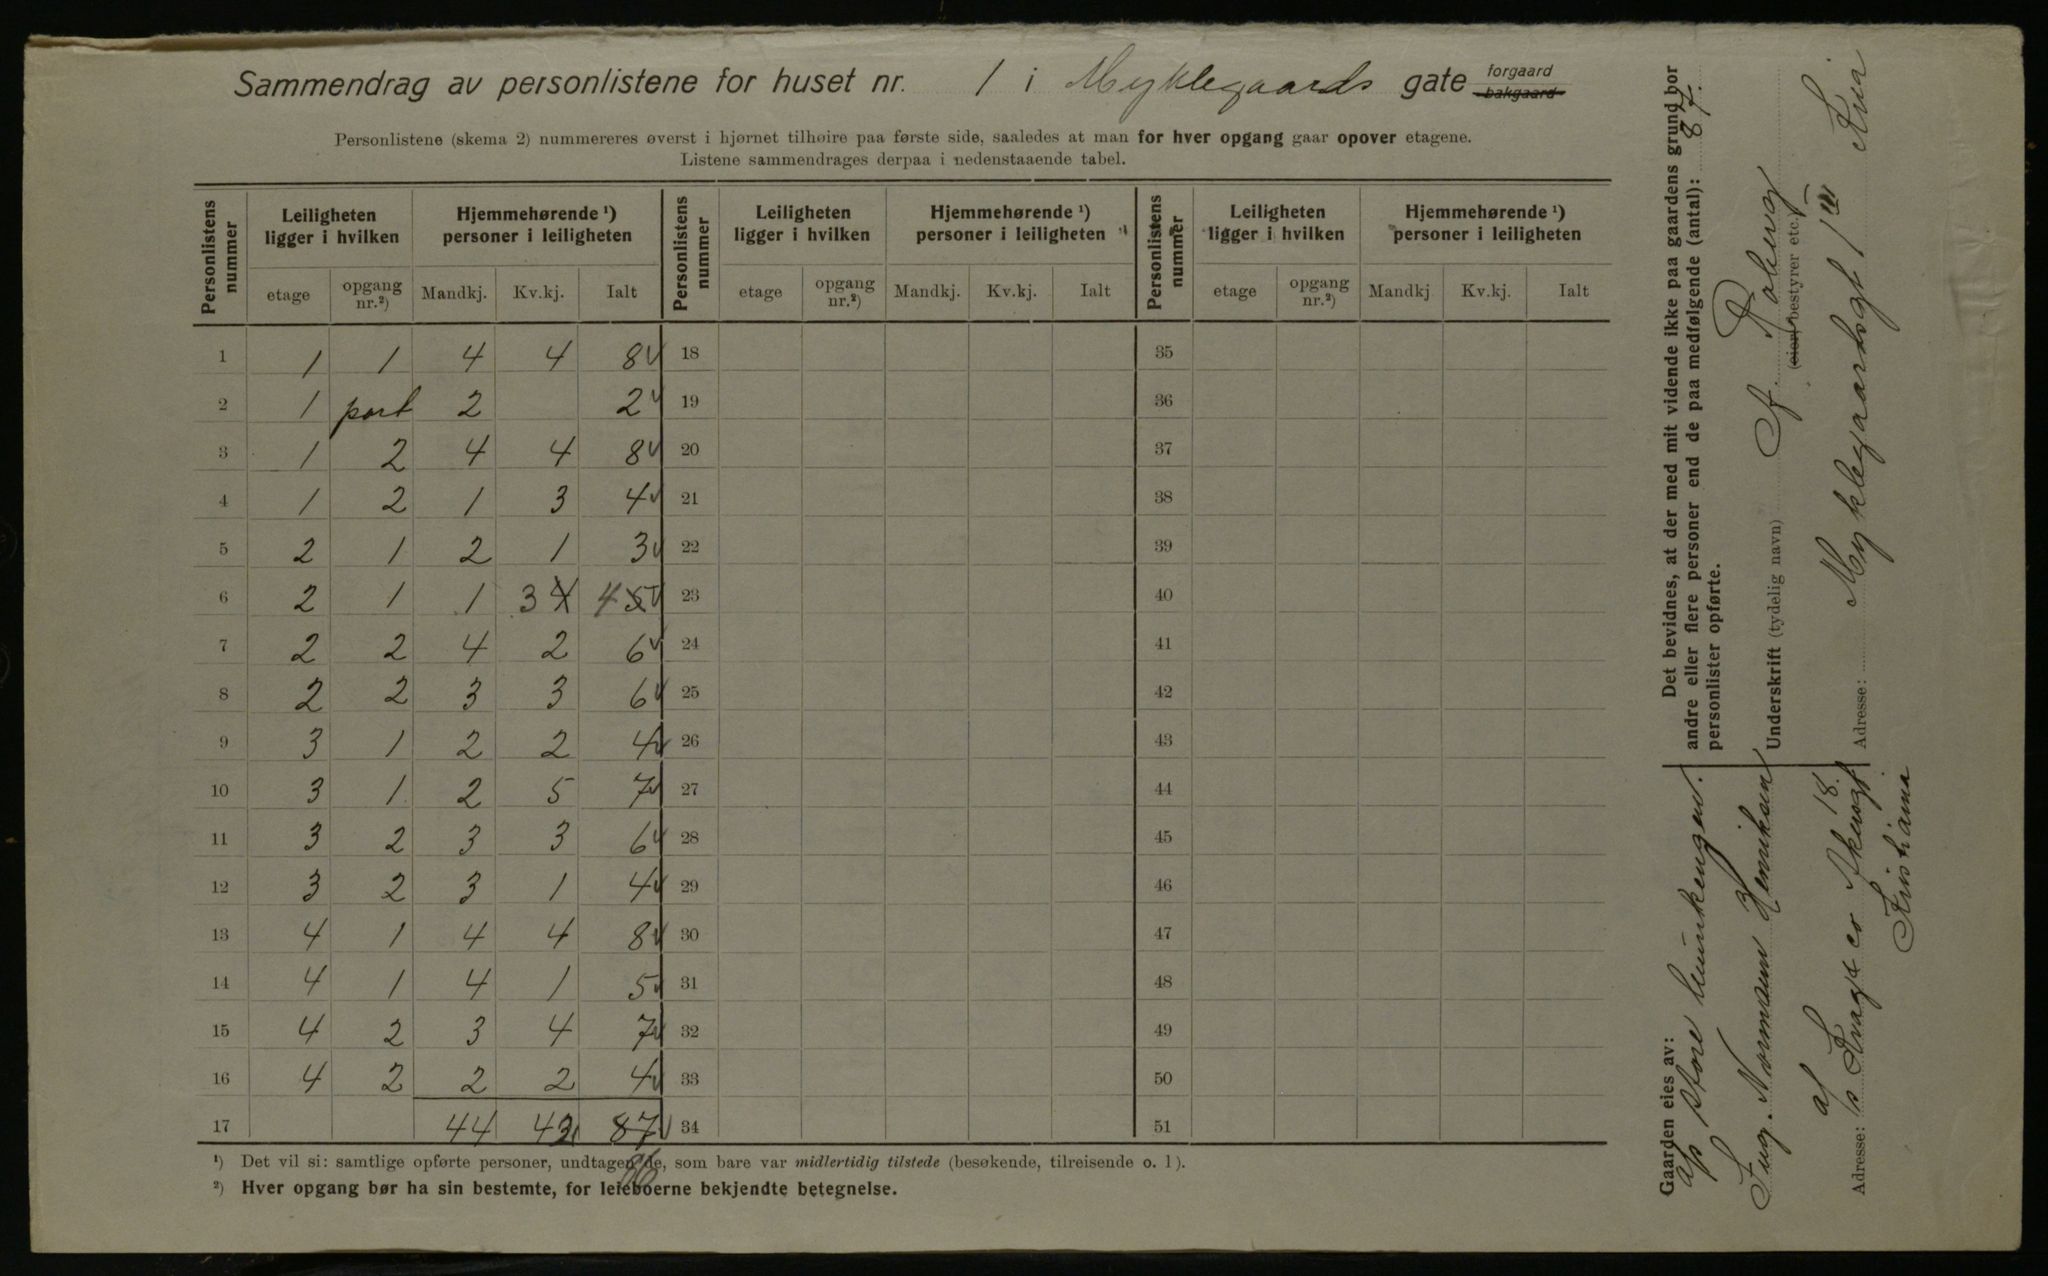 Sammendrag av personlistene for huset nr. 1 i Myklegaards gate forgaard bakgaard
Personlistene (skema 2) nummereres øverst i hjørnet tilhøire paa første side, saaledes at man for hver opgang gaar opover etagene.
Listene sammendrages derpaa i nedenstaaende tabel.
Personlistens nummer | Leiligheten ligger i hvilken | Hjemmehørende ¹) personer i leiligheten | Personlistens nummer | Leiligheten ligger i hvilken | Hjemmehørende ¹) personer i leiligheten | Personlistens nummer | Leiligheten ligger i hvilken | Hjemmehørende ¹) personer i leiligheten
etage | opgang nr.²) | Mandkj. | Kv.kj. | Ialt | etage | opgang nr.²) | Mandkj. | Kv.kj. | Ialt | etage | opgang nr.²) | Mandkj | Kv.kj. | Ialt
1 1 1 4 4 8 v 18 35
2 1 port 2 2 v 19 36
3 1 2 4 4 8 v 20 37
4 1 2 1 3 4 v 21 38
5 2 1 2 1 3 v 22 39
6 2 1 1 3 4 4 5 v 23 40
7 2 2 4 2 6 v 24 41
8 2 2 3 3 6 v 25 42
9 3 1 2 2 4 v 26 43
10 3 1 2 5 7 v 27 44
11 3 2 3 3 6 v 28 45
12 3 2 3 1 4 v 29 46
13 4 1 4 4 8 v 30 47
14 4 1 4 1 5 v 31 48
15 4 2 3 4 7 v 32 49
16 4 2 2 2 4 v 33 50
17 44 87 v 34 51
86
¹) Det vil si: samtlige opførte personer, undtagen de, som bare var midlertidig tilstede (besøkende, tilreisende o. l).
²) Hver opgang bør ha sin bestemte, for leieboerne bekjendte betegnelse.
Gaarden eies av:
Ing. Normann Henriksen
Adresse:
18
Kristiania
Det bevidnes, at der med mit vidende ikke paa gaardens grund bor
andre eller flere personer end de paa medfølgende (antal): 87.
personlister opførte.
Underskrift (tydelig navn)
(eier, bestyrer etc.)
Adresse: Myklegaardsgt 1 III Kria